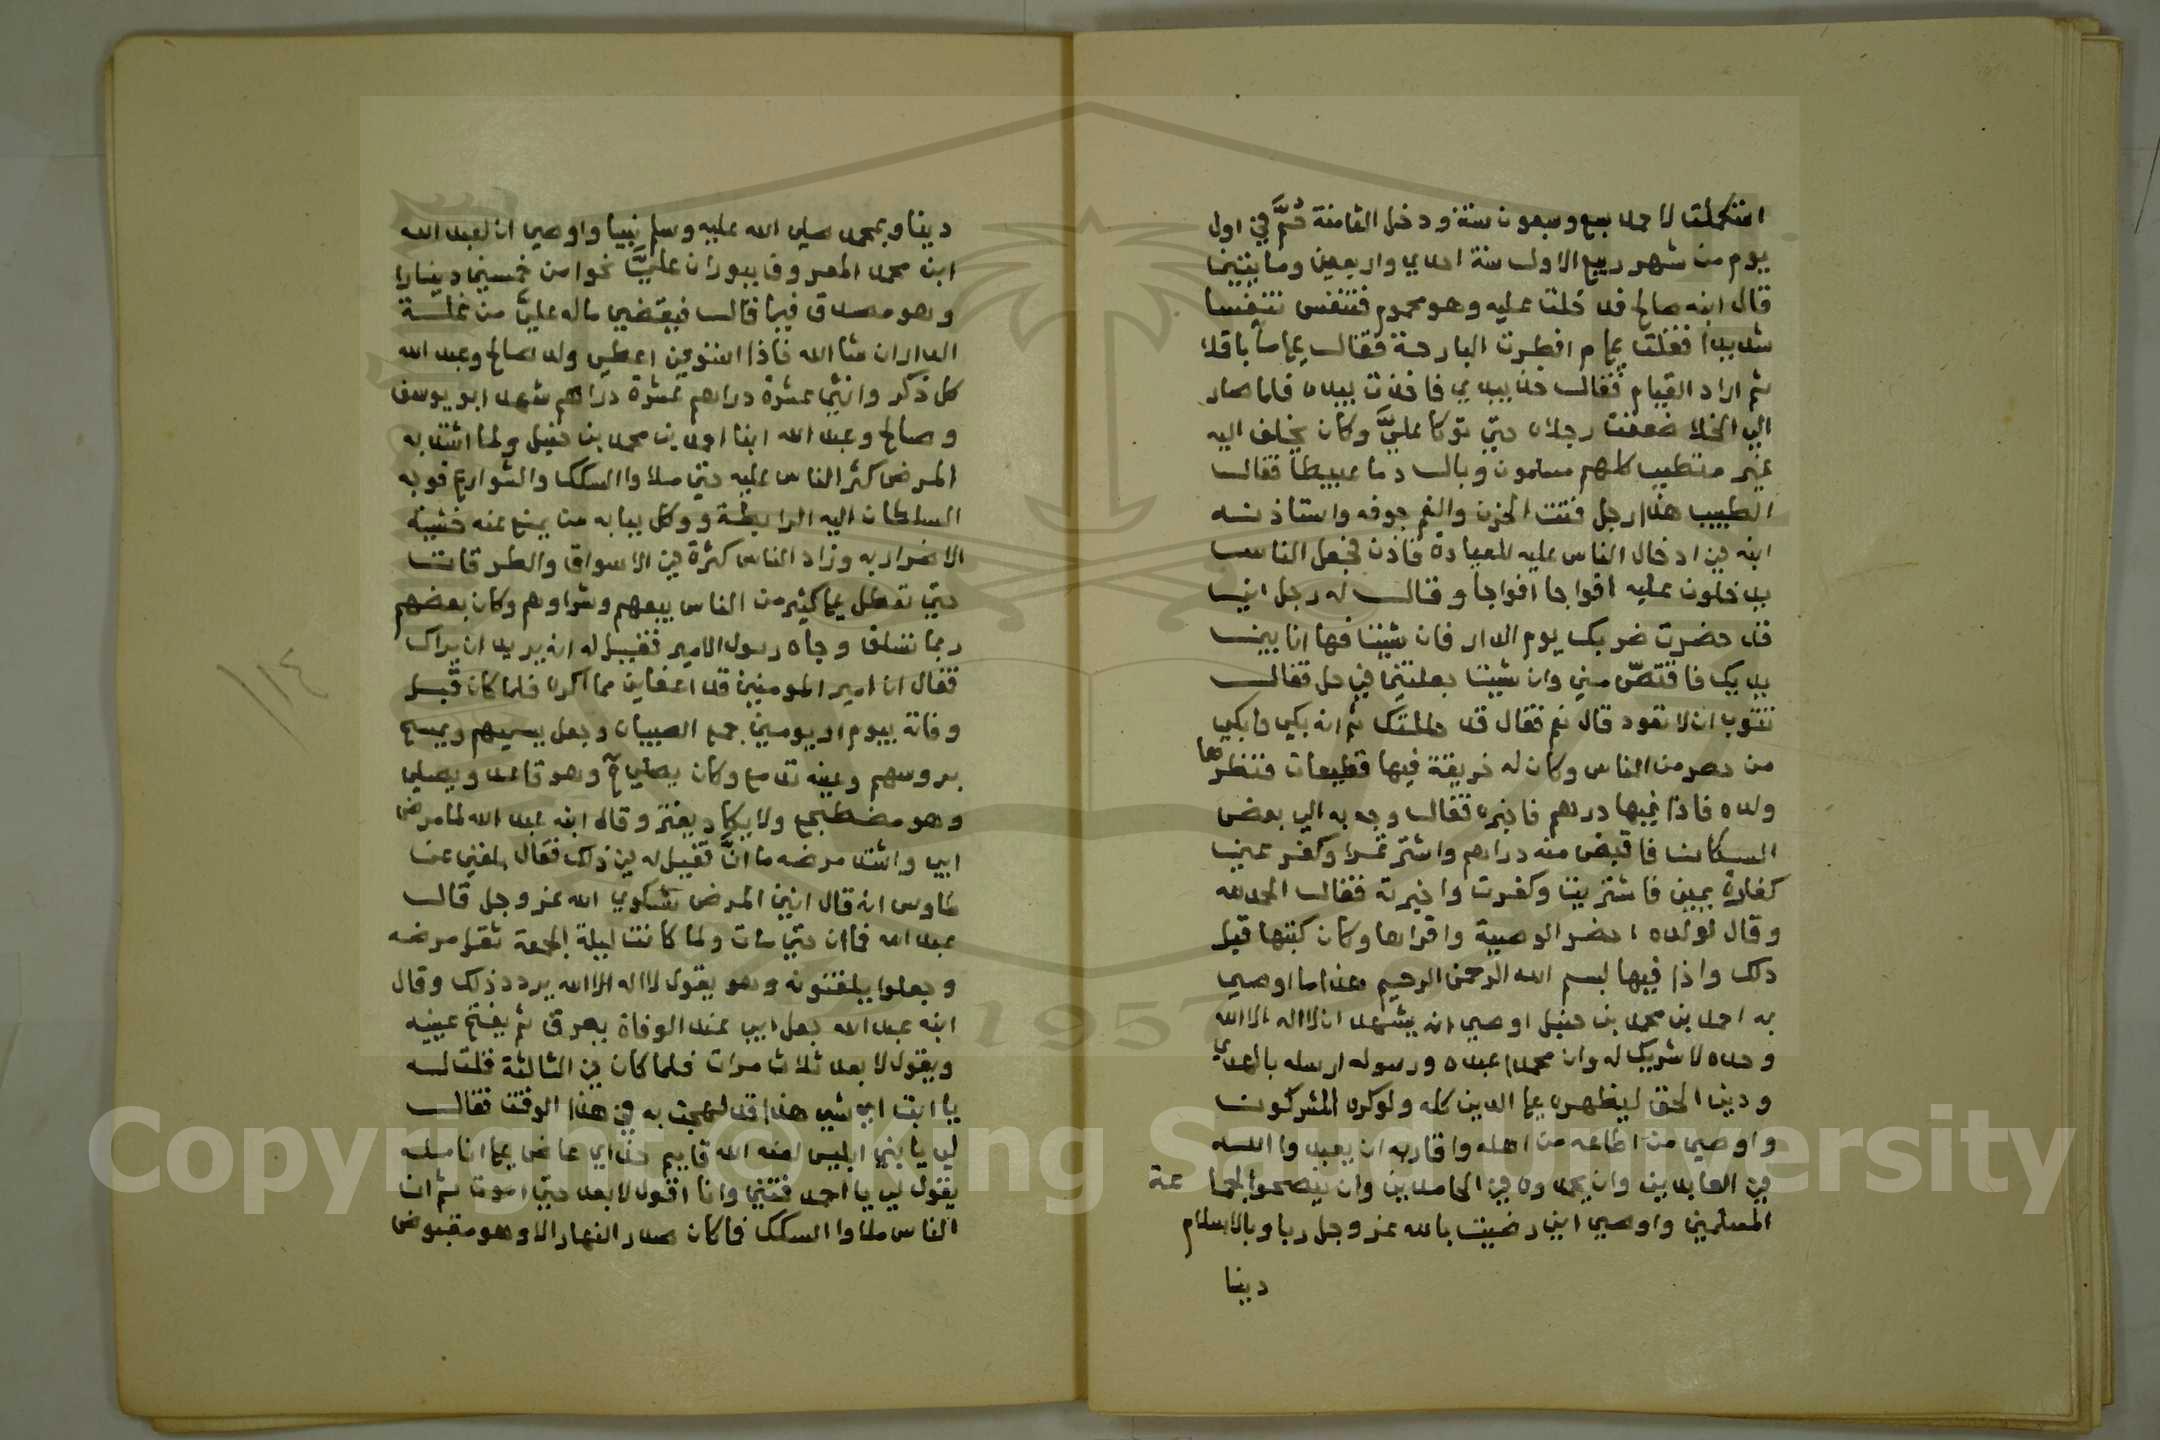 استكملت لاحمد سبع وسبعون سنة ودخل الثامنة حُمَّ في اول
يوم من شهر ربيع الاول سنة احدي واربعين ومايتين
قال ابنه صالح فدخلت عليه وهو محموم فتنفس تنفسا
شديدا فقلت علي م افطرت البارحة فقال علي ما باقلا
ثم اراد القيام فقال خذ بيدي فاخذت بيده فلما صار
الي الخلا ضعفت رجلاه حتي توكا عليَّ وكان يختلف اليه
غير متطبب كلهم مسلمون وبال دما عبيطا فقال
الطبيب هذا رجل فتت الحزن والغم جوفه واستاذنه
ابنه في ادخال الناس عليه للعيادة فاذن فجعل الناس
يدخلون عليه افواجا افواجا وقال له رجل اني
قد حضرت ضربك يوم الدار فان شيت فها انا بين
يديك فاقتصّ مني وان شيت جعلتني في حل فقال
تتوب ان لا تعود قال نعم فقال قد حللتك ثم انه بكي وابكي
من حضر من الناس وكان له خريقة فيها قطيعات فنظرها
ولده فاذا فيها درهم فاخبره فقال وجه به الي بعض
السكان فاقبض منه دراهم واشتر تمرا وكفر عني
كفارة يمين فاشتريت وكفرت واخبرته فقال الحمد لله
وقال لولده احضر الوصية واقراها وكان كتبها قبل
ذلك واذا فيها بسم الله الرحمن الرحيم هذا ما اوصي
به احمد بن محمد بن حنبل اوصي انه يشهد ان لا اله الا الله
وحده لا شريك له وان محمدا عبده ورسوله ارسله بالهدي
ودين الحق ليظهره علي الدين كله ولو كره المشركون
واوصي من اطاعه من اهله واقاربه ان يعبدوا الله
في العابدين وان يحمدوه في الحامدين وان ينصحوا لجماعة
المسلمين واوصي اني رضيت بالله عز وجل ربا وبالاسلام
دينا
دينا وبمحمد صلي الله عليه وسلم نبيا واوصي ان لعبد الله
ابن محمد المعروف ببوران عليَّ نحوا من خمسين دينارا
وهو مصدق فيما قال فيقضي ماله عليّ من غلة
الدار ان شا الله فاذا استوفي اعطي ولد صالح وعبد الله
كل ذكر وانثي عشرة دراهم عشرة دراهم شهد ابو يوسف
وصالح وعبد الله ابنا احمد بن محمد بن حنبل ولما اشتد به
المرض كثر الناس عليه حتي ملاوا السكك والشوارع فوجه
السلطان اليه الرابطة ووكل ببابه من يمنع عنه خشية
الاضرار به وزاد الناس كثرة في الاسواق والطرقات
حتي تعطل علي كثير من الناس بيعهم وشراوهم وكان بعضهم
ربما تسلق وجاه رسول الامير فقيل له انه يريد ان يراك
فقال ان امير المومنين قد اعفاني مما اكره فلما كان قبل
وفاته بيوم او يومين جمع الصبيان وجعل يسميهم ويمسح
بروسهم وعينه تدمع وكان يصلي وهو قاعد ويصلي
وهو مضطجع ولا يكاد يفتر وقال ابنه عبد الله لما مرض
ابي واشتد مرضه ما انَّ فقيل له في ذلك فقال بلغني عن
طاوس انه قال انين المرض شكوي الله عز وجل قال
عبد الله فما ان حتي مات ولما كانت ليلة الجمعة ثقل مرضه
وجعلوا يلقنونه وهو يقول لا اله الا الله يردد ذلك وقال
ابنه عبد الله جعل ابي عند الوفاة يعرق ثم يفتح عينيه
ويقول لا بعد ثلاث مرات فلما كان في الثالثة قلت له
يا ابت اي شي هذا قد لهجت به في هذا الوقت فقال
لي يا بني ابليس لعنه الله قايم حذاي عاض علي انامله
يقول لي يا احمد فتني وانا اقول لا بعد حتي اموت ثم ان
الناس ملاوا السكك فما كان صدر النهار الا وهو مقبوض
١١٤
Copyright © King Saud University
1957